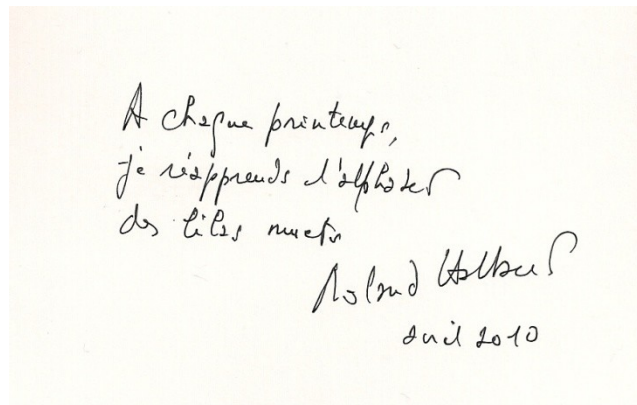 A chaque printemps,
je réapprends l'alphabet
des lilas muets
Roland Halbert
avril 2010